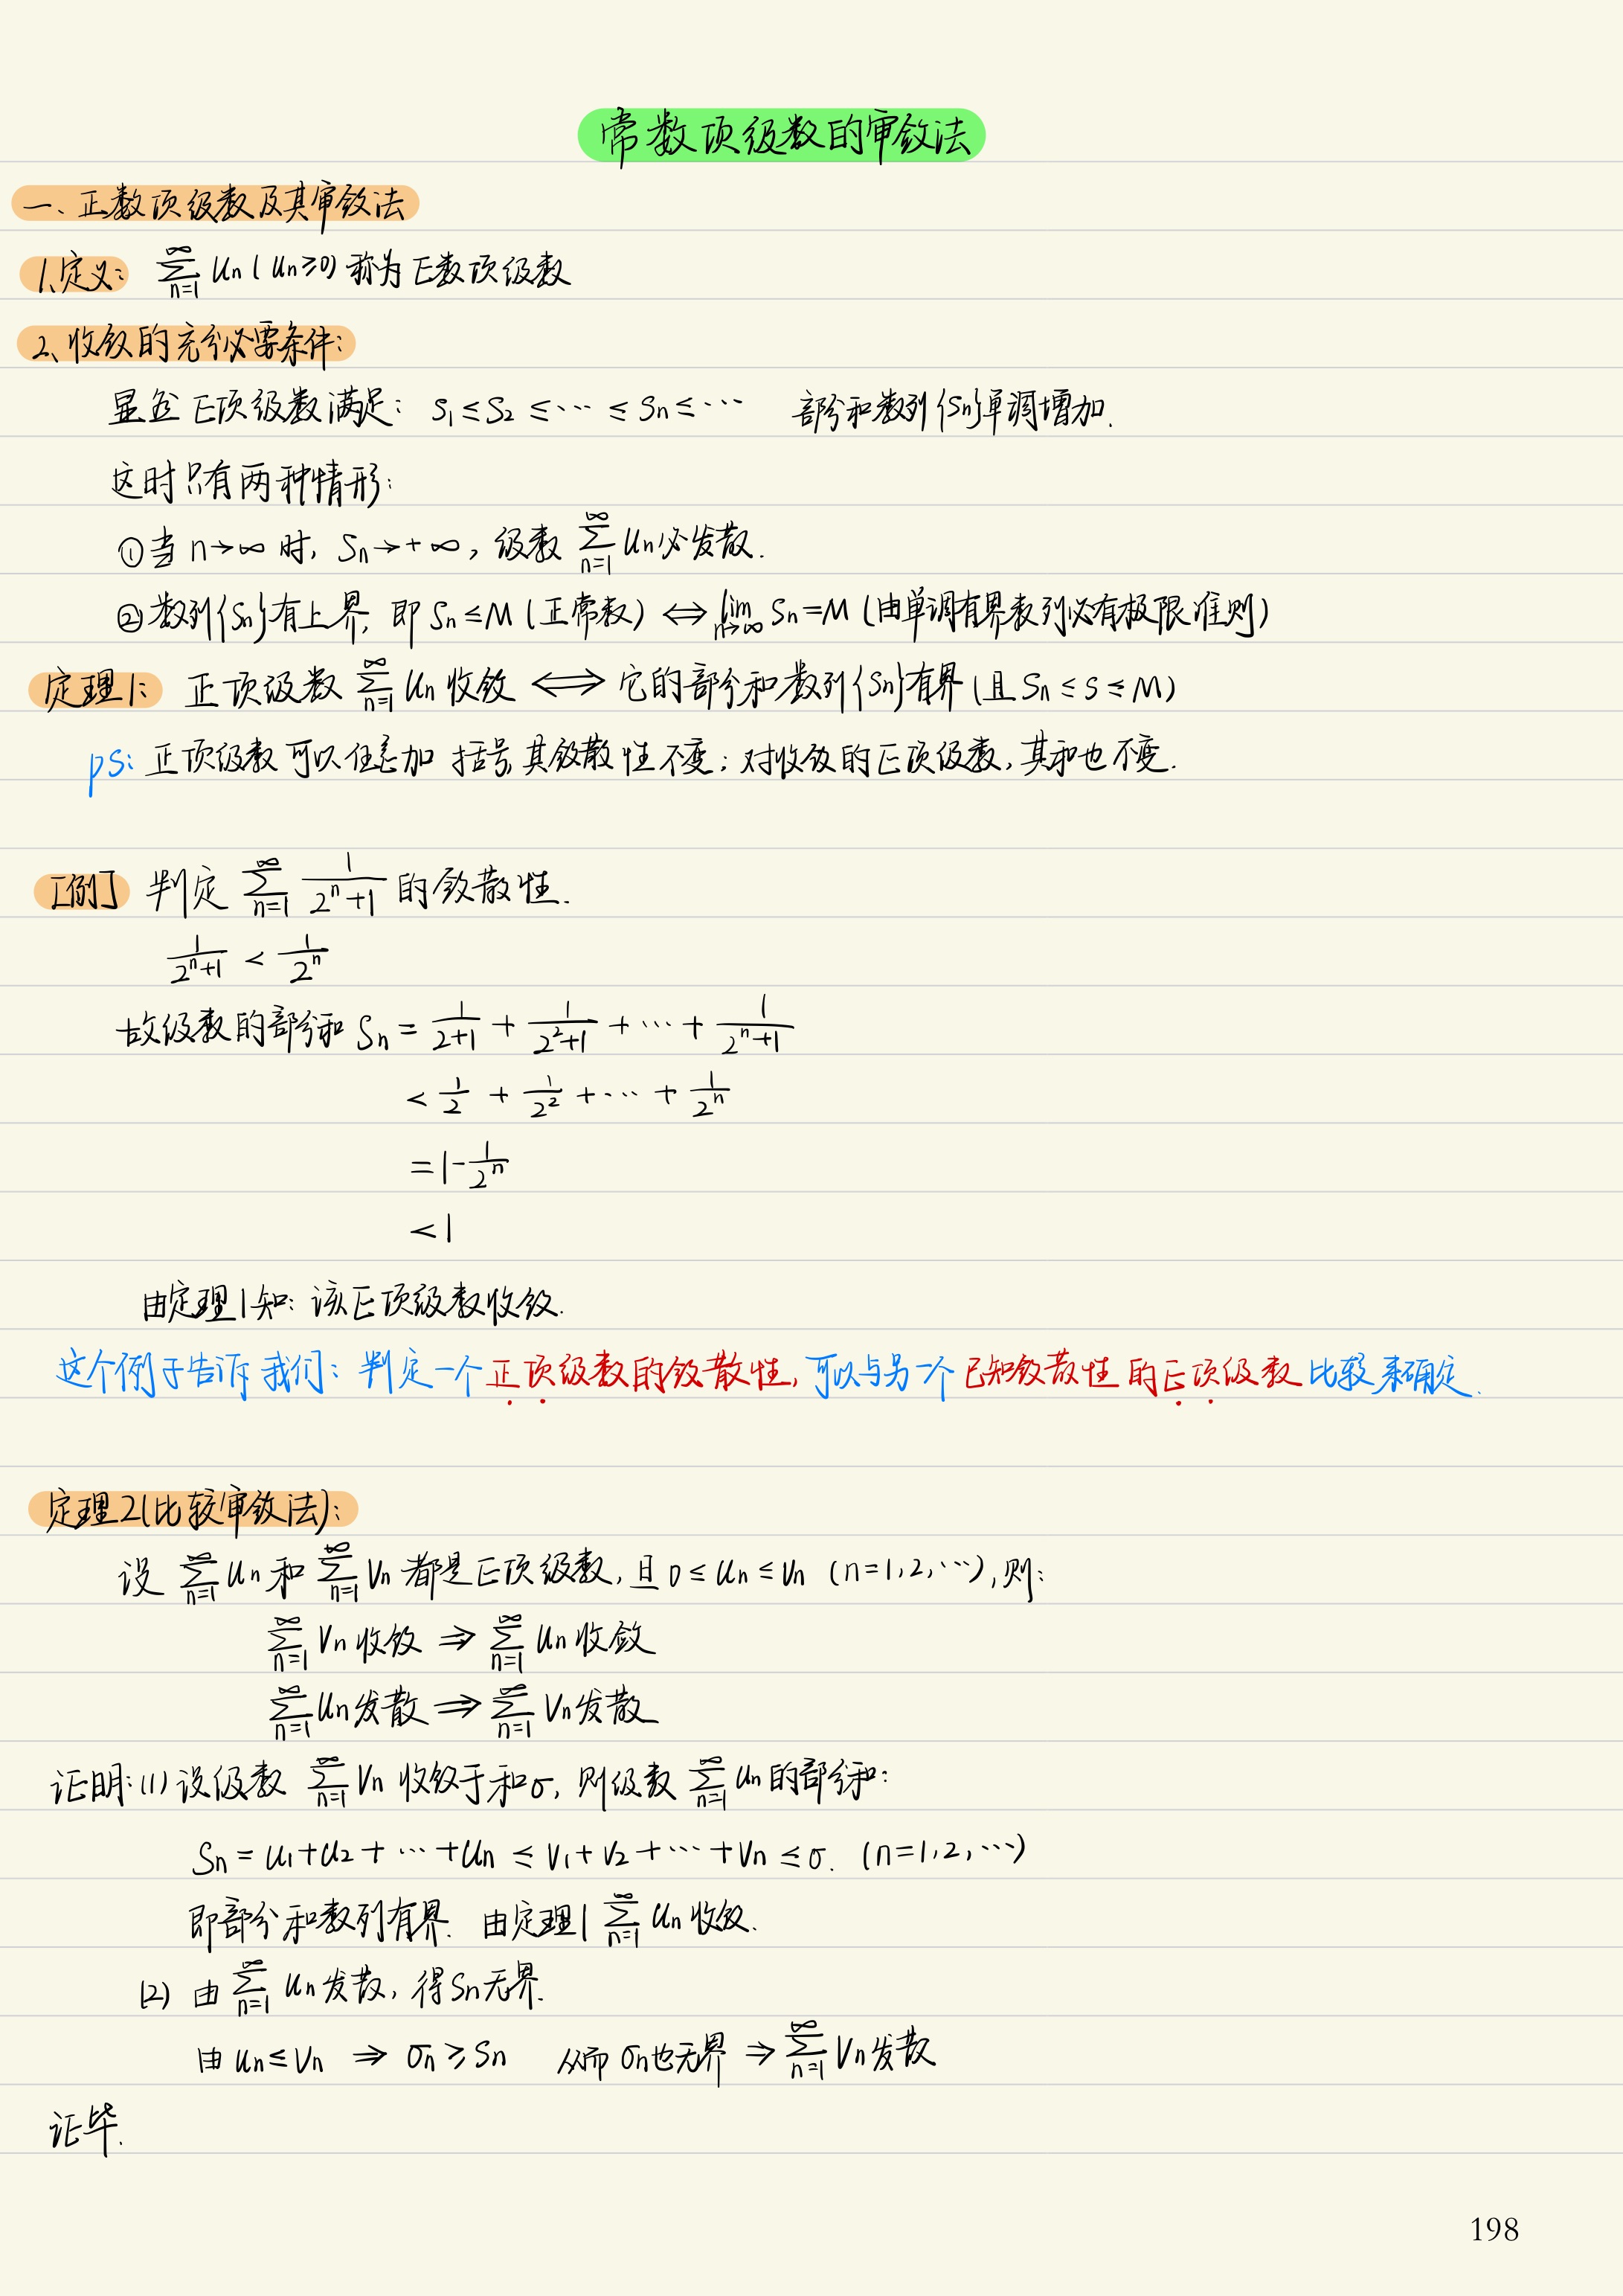 常数项级数的审敛法
一、正数项级数及其审敛法
1、定义: ∑_{n=1}^{∞} Un (Un≥0) 称为正数项级数
2、收敛的充分必要条件:
显然正项级数满足: S₁≤S₂≤…≤Sn≤… 部分和数列{Sn}单调增加.
这时只有两种情形:
①当n→∞时, Sn→+∞, 级数 ∑_{n=1}^{∞} Un必发散.
②数列{Sn}有上界, 即Sn≤M (正常数) ⇔ lim_{n→∞} Sn=M (由单调有界数列必有极限准则)
定理1: 正项级数 ∑_{n=1}^{∞} Un 收敛 ⇔ 它的部分和数列{Sn}有界 (且Sn≤S≤M)
ps: 正项级数可以任意加括号,其敛散性不变; 对收敛的正项级数, 其和也不变.
[例] 判定 ∑_{n=1}^{∞} 1/(2^n+1) 的敛散性.
1/(2^n+1) < 1/2^n
故级数的部分和 Sn = 1/(2+1) + 1/(2²+1) + … + 1/(2^n+1)
< 1/2 + 1/2² + … + 1/2^n
= 1-1/2^n
< 1
由定理1知: 该正项级数收敛.
这个例子告诉我们: 判定一个正项级数的敛散性, 可以与另一个已知敛散性的正项级数比较来确定.
定理2(比较审敛法):
设 ∑_{n=1}^{∞} Un 和 ∑_{n=1}^{∞} Vn 都是正项级数, 且 0≤Un≤Vn (n=1,2,…), 则:
∑_{n=1}^{∞} Vn 收敛 ⇒ ∑_{n=1}^{∞} Un 收敛
∑_{n=1}^{∞} Un 发散 ⇒ ∑_{n=1}^{∞} Vn 发散
证明: (1) 设级数 ∑_{n=1}^{∞} Vn 收敛于和σ, 则级数 ∑_{n=1}^{∞} Un 的部分和:
Sn = U₁+U₂+…+Un ≤ V₁+V₂+…+Vn ≤ σ. (n=1,2,…)
即部分和数列有界. 由定理1 ∑_{n=1}^{∞} Un 收敛.
(2) 由 ∑_{n=1}^{∞} Un 发散, 得Sn无界.
由 Un≤Vn ⇒ σn≥Sn 从而σn也无界 ⇒ ∑_{n=1}^{∞} Vn 发散
证毕.
198